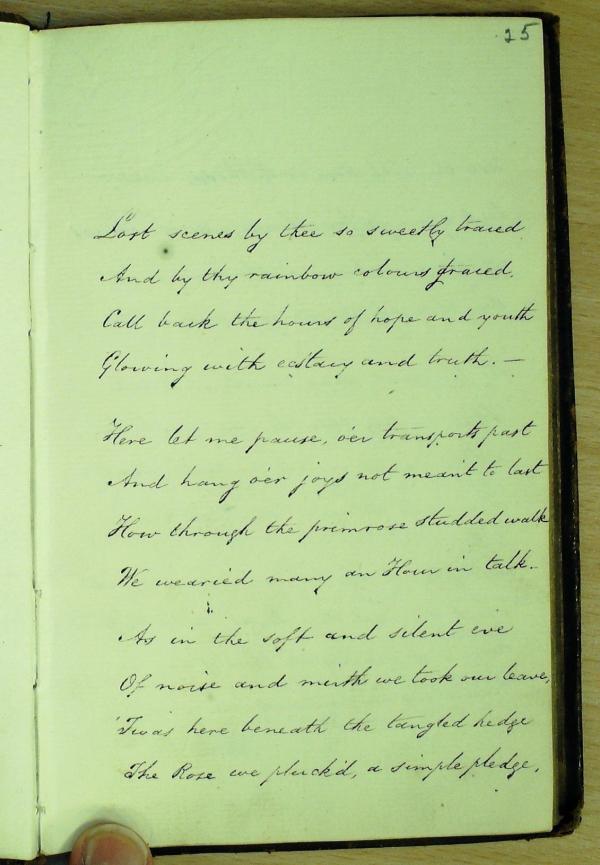 25
Past scenes by thee so sweetly traced
And by thy rainbow colours graced,
Call back the hours of hope and youth
Glowing with ecstacy and truth. —
Here let me pause, o'er transports past
And hang o'er joys not meant to last
How through the primrose studded walk
We wearied many an Hour in talk.
As in the soft and silent eve
Of noise and mirth we took our leave,
'Twas here beneath the tangled hedge
The Rose we pluck'd, a simple pledge,